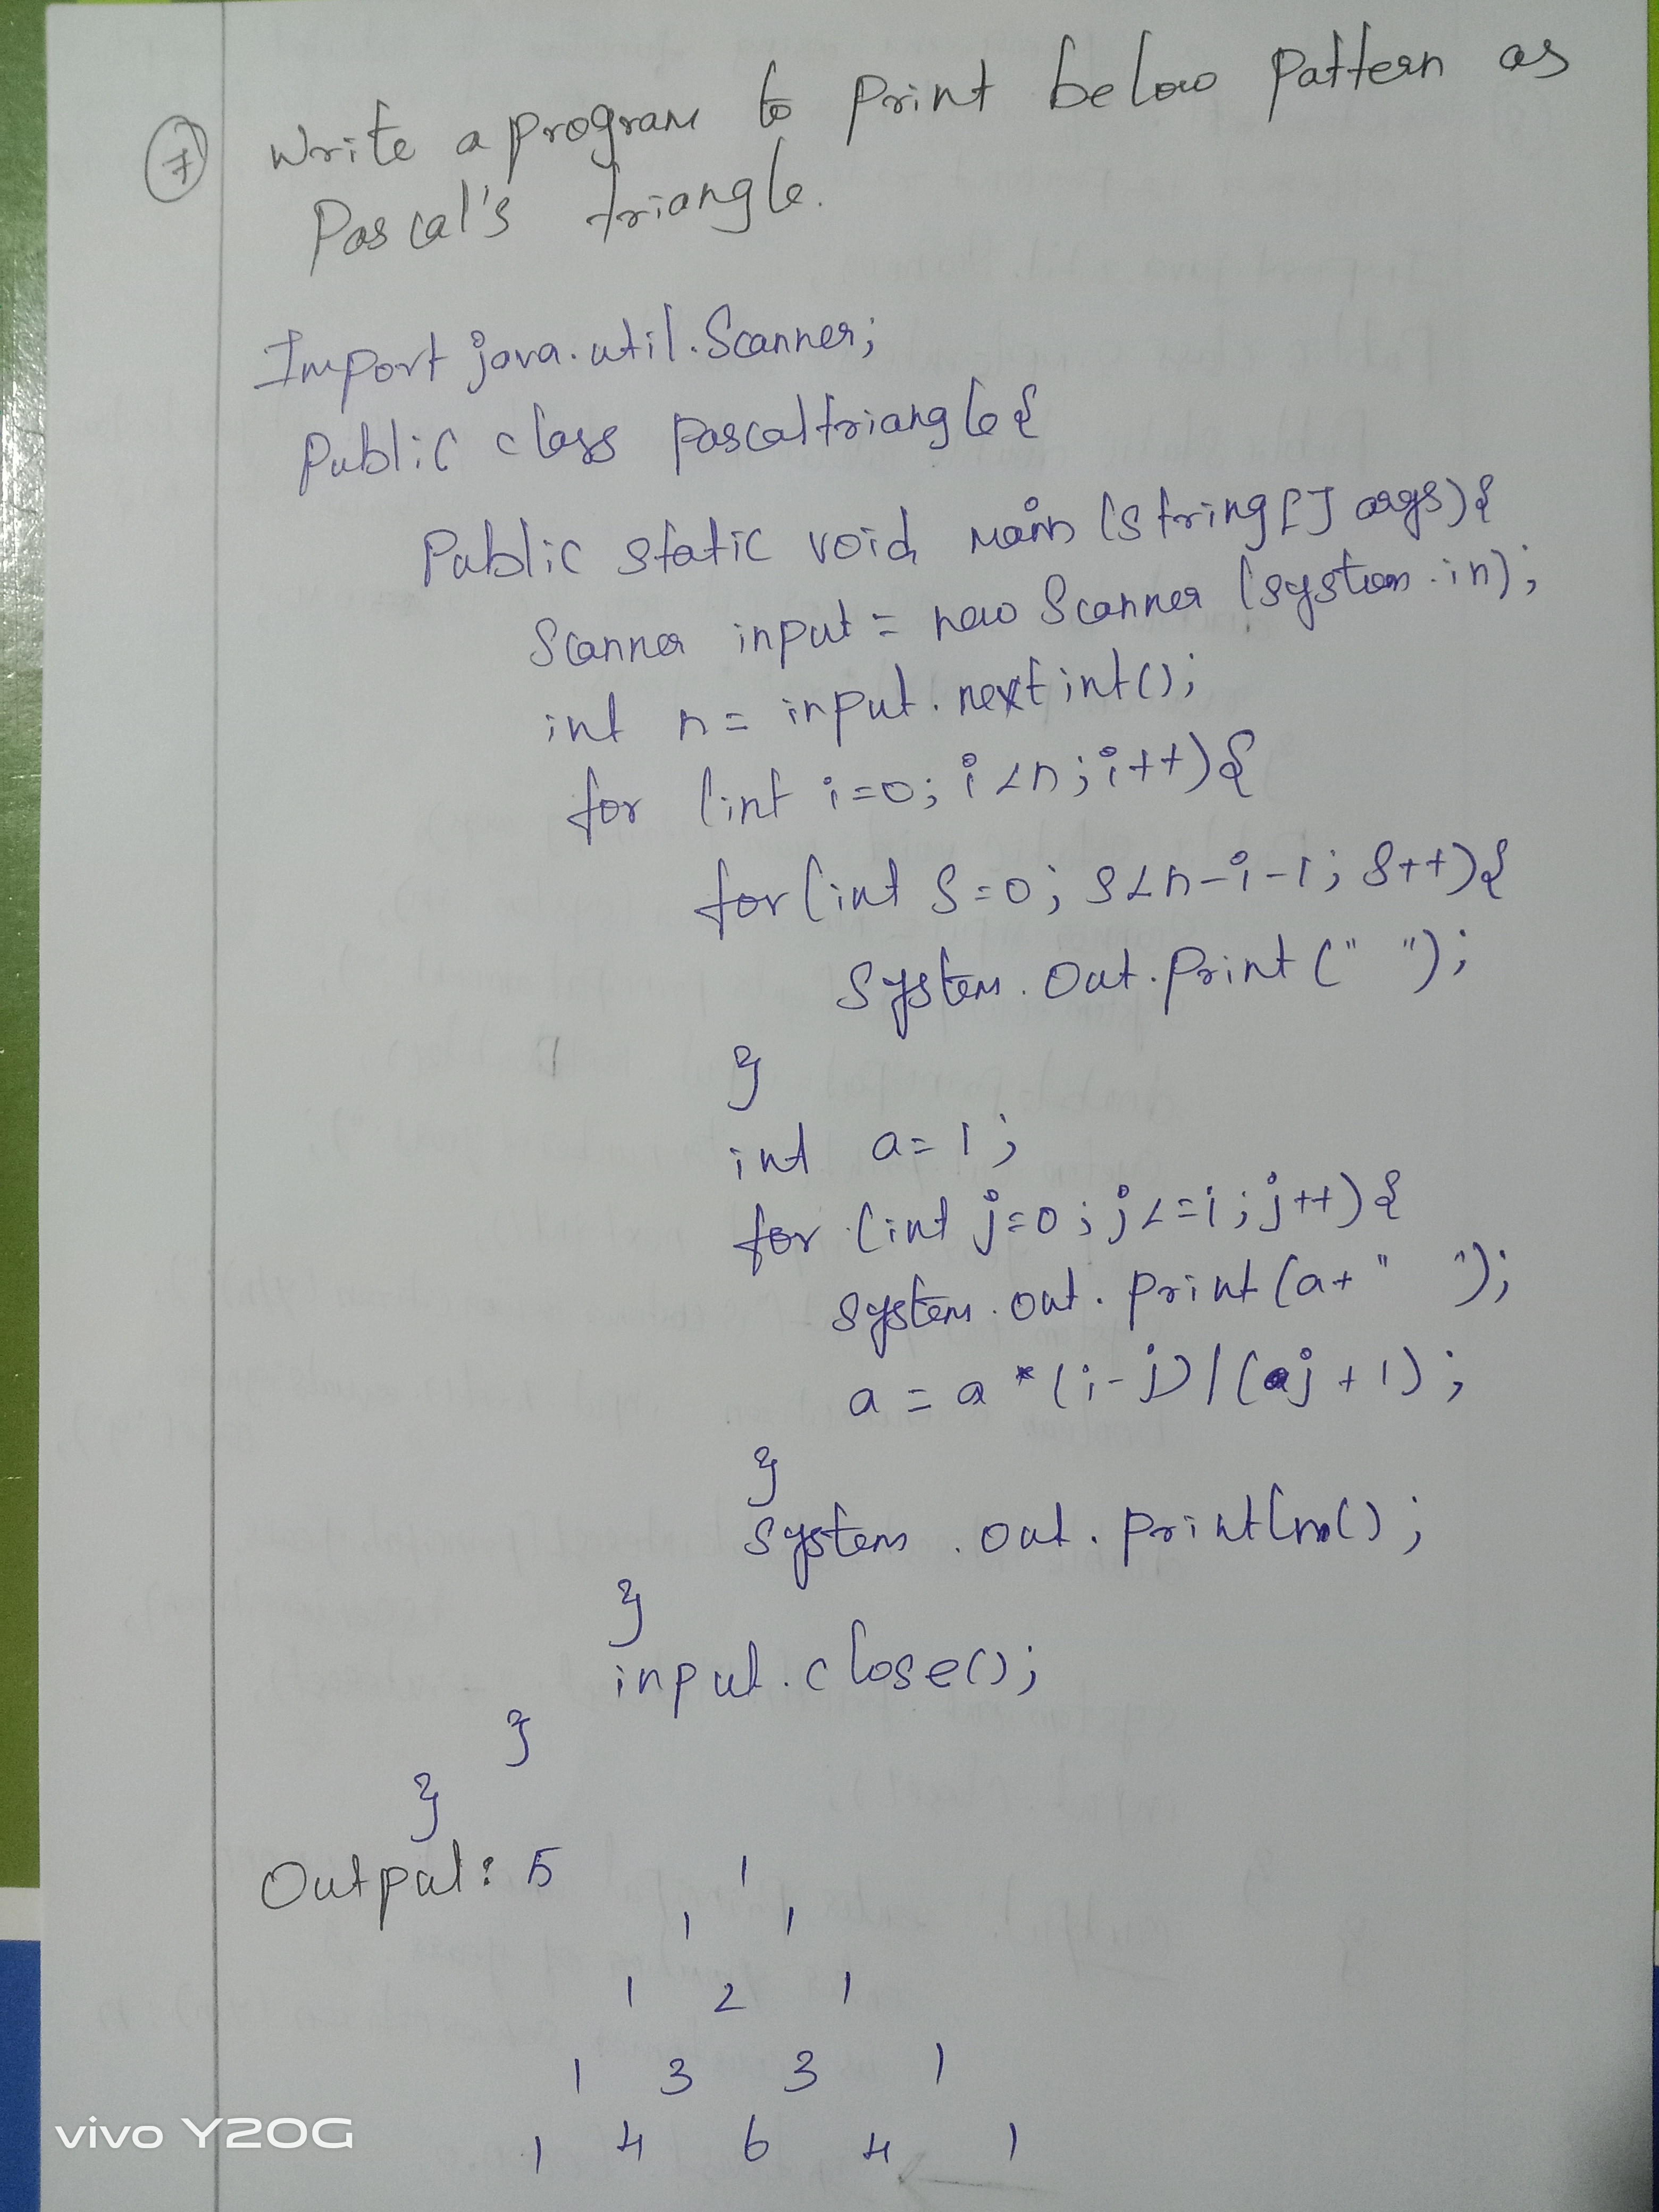 7 Write a program to print below pattern as
Pascal's triangle.
Import java.util.Scanner;
Public class Pascaltriangle{
Public static void main (string[] args){
Scanner input = new Scanner (system.in);
int n = input.nextint();
for (int i=0; i<n; i++){
for (int s=0; s<n-i-1; s++){
System.out.print(" ");
}
int a=1;
for (int j=0; j<=i; j++){
System.out.print(a+" ");
a = a*(i-j)/(j+1);
}
System.out.println();
}
input.close();
}
}
Output: 5 1
1 1
1 2 1
1 3 3 1
1 4 6 4 1
vivo Y20G